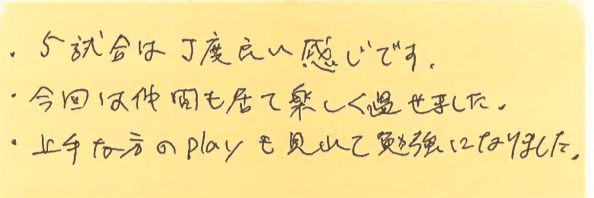 ・5試合は丁度良い感じです。
・今回は仲間も居て楽しく過せました。
・上手な方のplayも見れて勉強になりました。